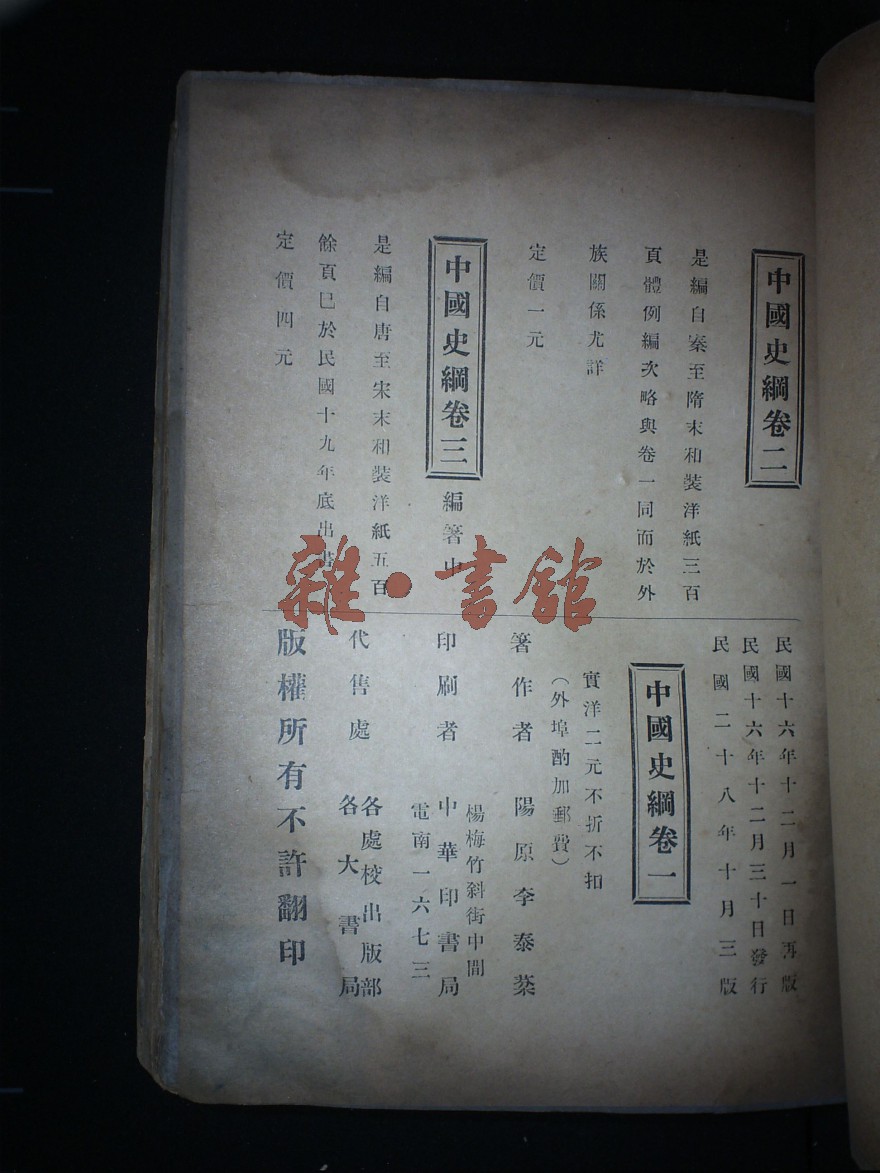 中國史綱卷二
是編自秦至隋末和裝洋紙三百
頁體例編次略與卷一同而於外
族關係尤詳
定價一元
中國史綱卷三
編箸中
是編自唐至宋末和裝洋紙五百
餘頁巳於民國十九年底出書
定價四元
民國十六年十二月一日再版
民國十六年十二月三十日發行
民國二十八年十月三版
中國史綱卷一
實洋二元不折不扣
（外埠酌加郵費）
箸作者 陽原李泰棻
印刷者
楊梅竹斜街中間
中華印書局
電南一六七三
代售處
各處校出版部
各大書局
版權所有不許翻印
雜·書館